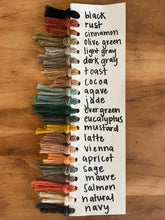 black
rust
cinnamon
olive green
light gray
dark gray
toast
cocoa
agave
jade
evergreen
eucalyptus
mustard
latte
vienna
apricot
sage
mauve
salmon
natural
navy